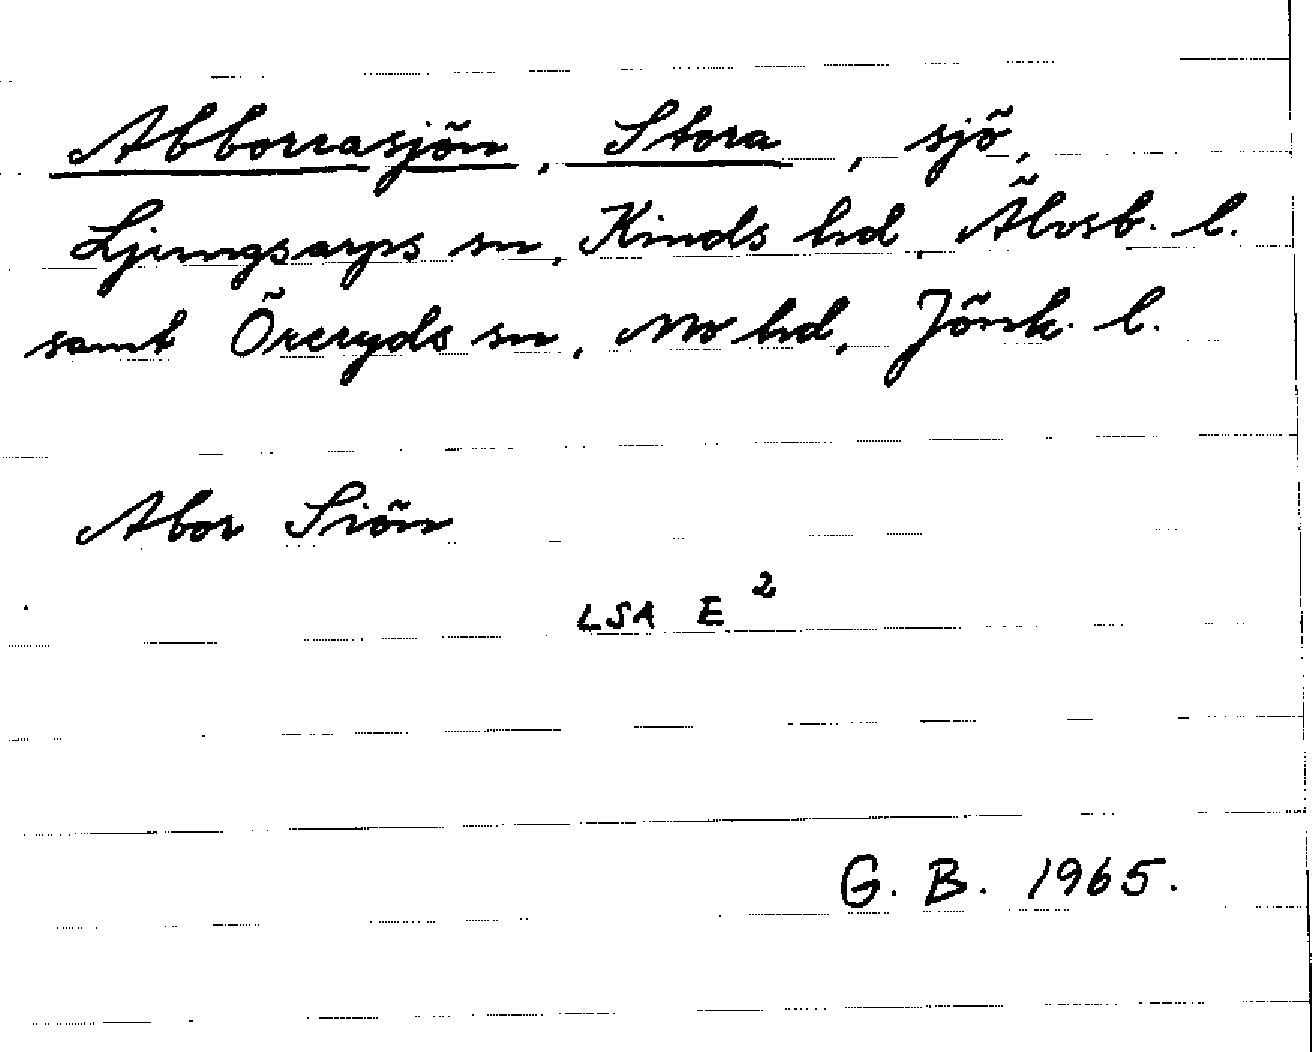 Abborrasjön, Stora, sjö,
Ljungsarps sn, Kinds hd, Älvsb. l.
samt Öreryds sn, Mo hd, Jönk. l.
Abor Siön
LSA E 2
G. B. 1965.